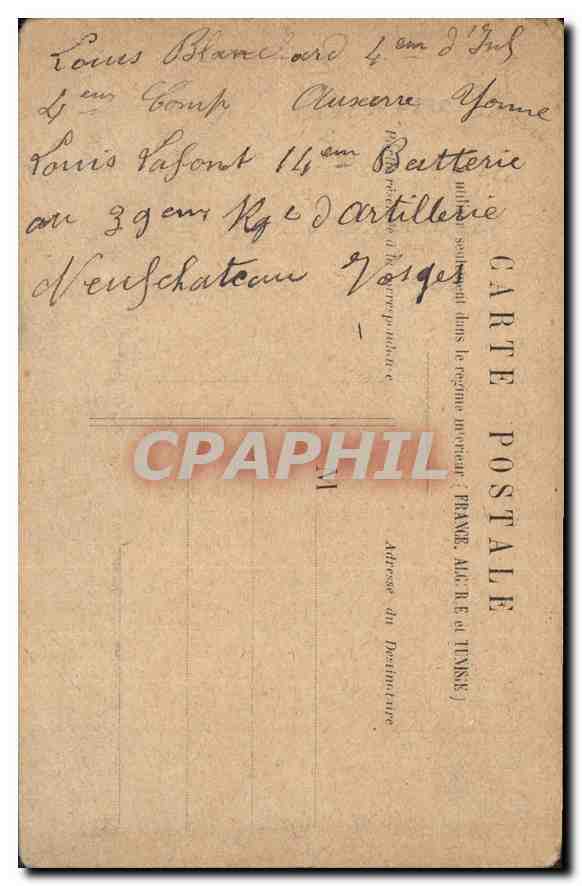 Louis Blanchard 4em d'Inf
4em Comp Auxerre Yonne
Louis Lafont 14em Batterie
au 39em Rgt d'artillerie
Neufchateau Vosges
CARTE POSTALE
à utiliser seulement dans le régime intérieur (FRANCE, ALGÉRIE et TUNISIE)
Partie réservée à la correspondance
Adresse du Destinataire
M
CPAPHIL